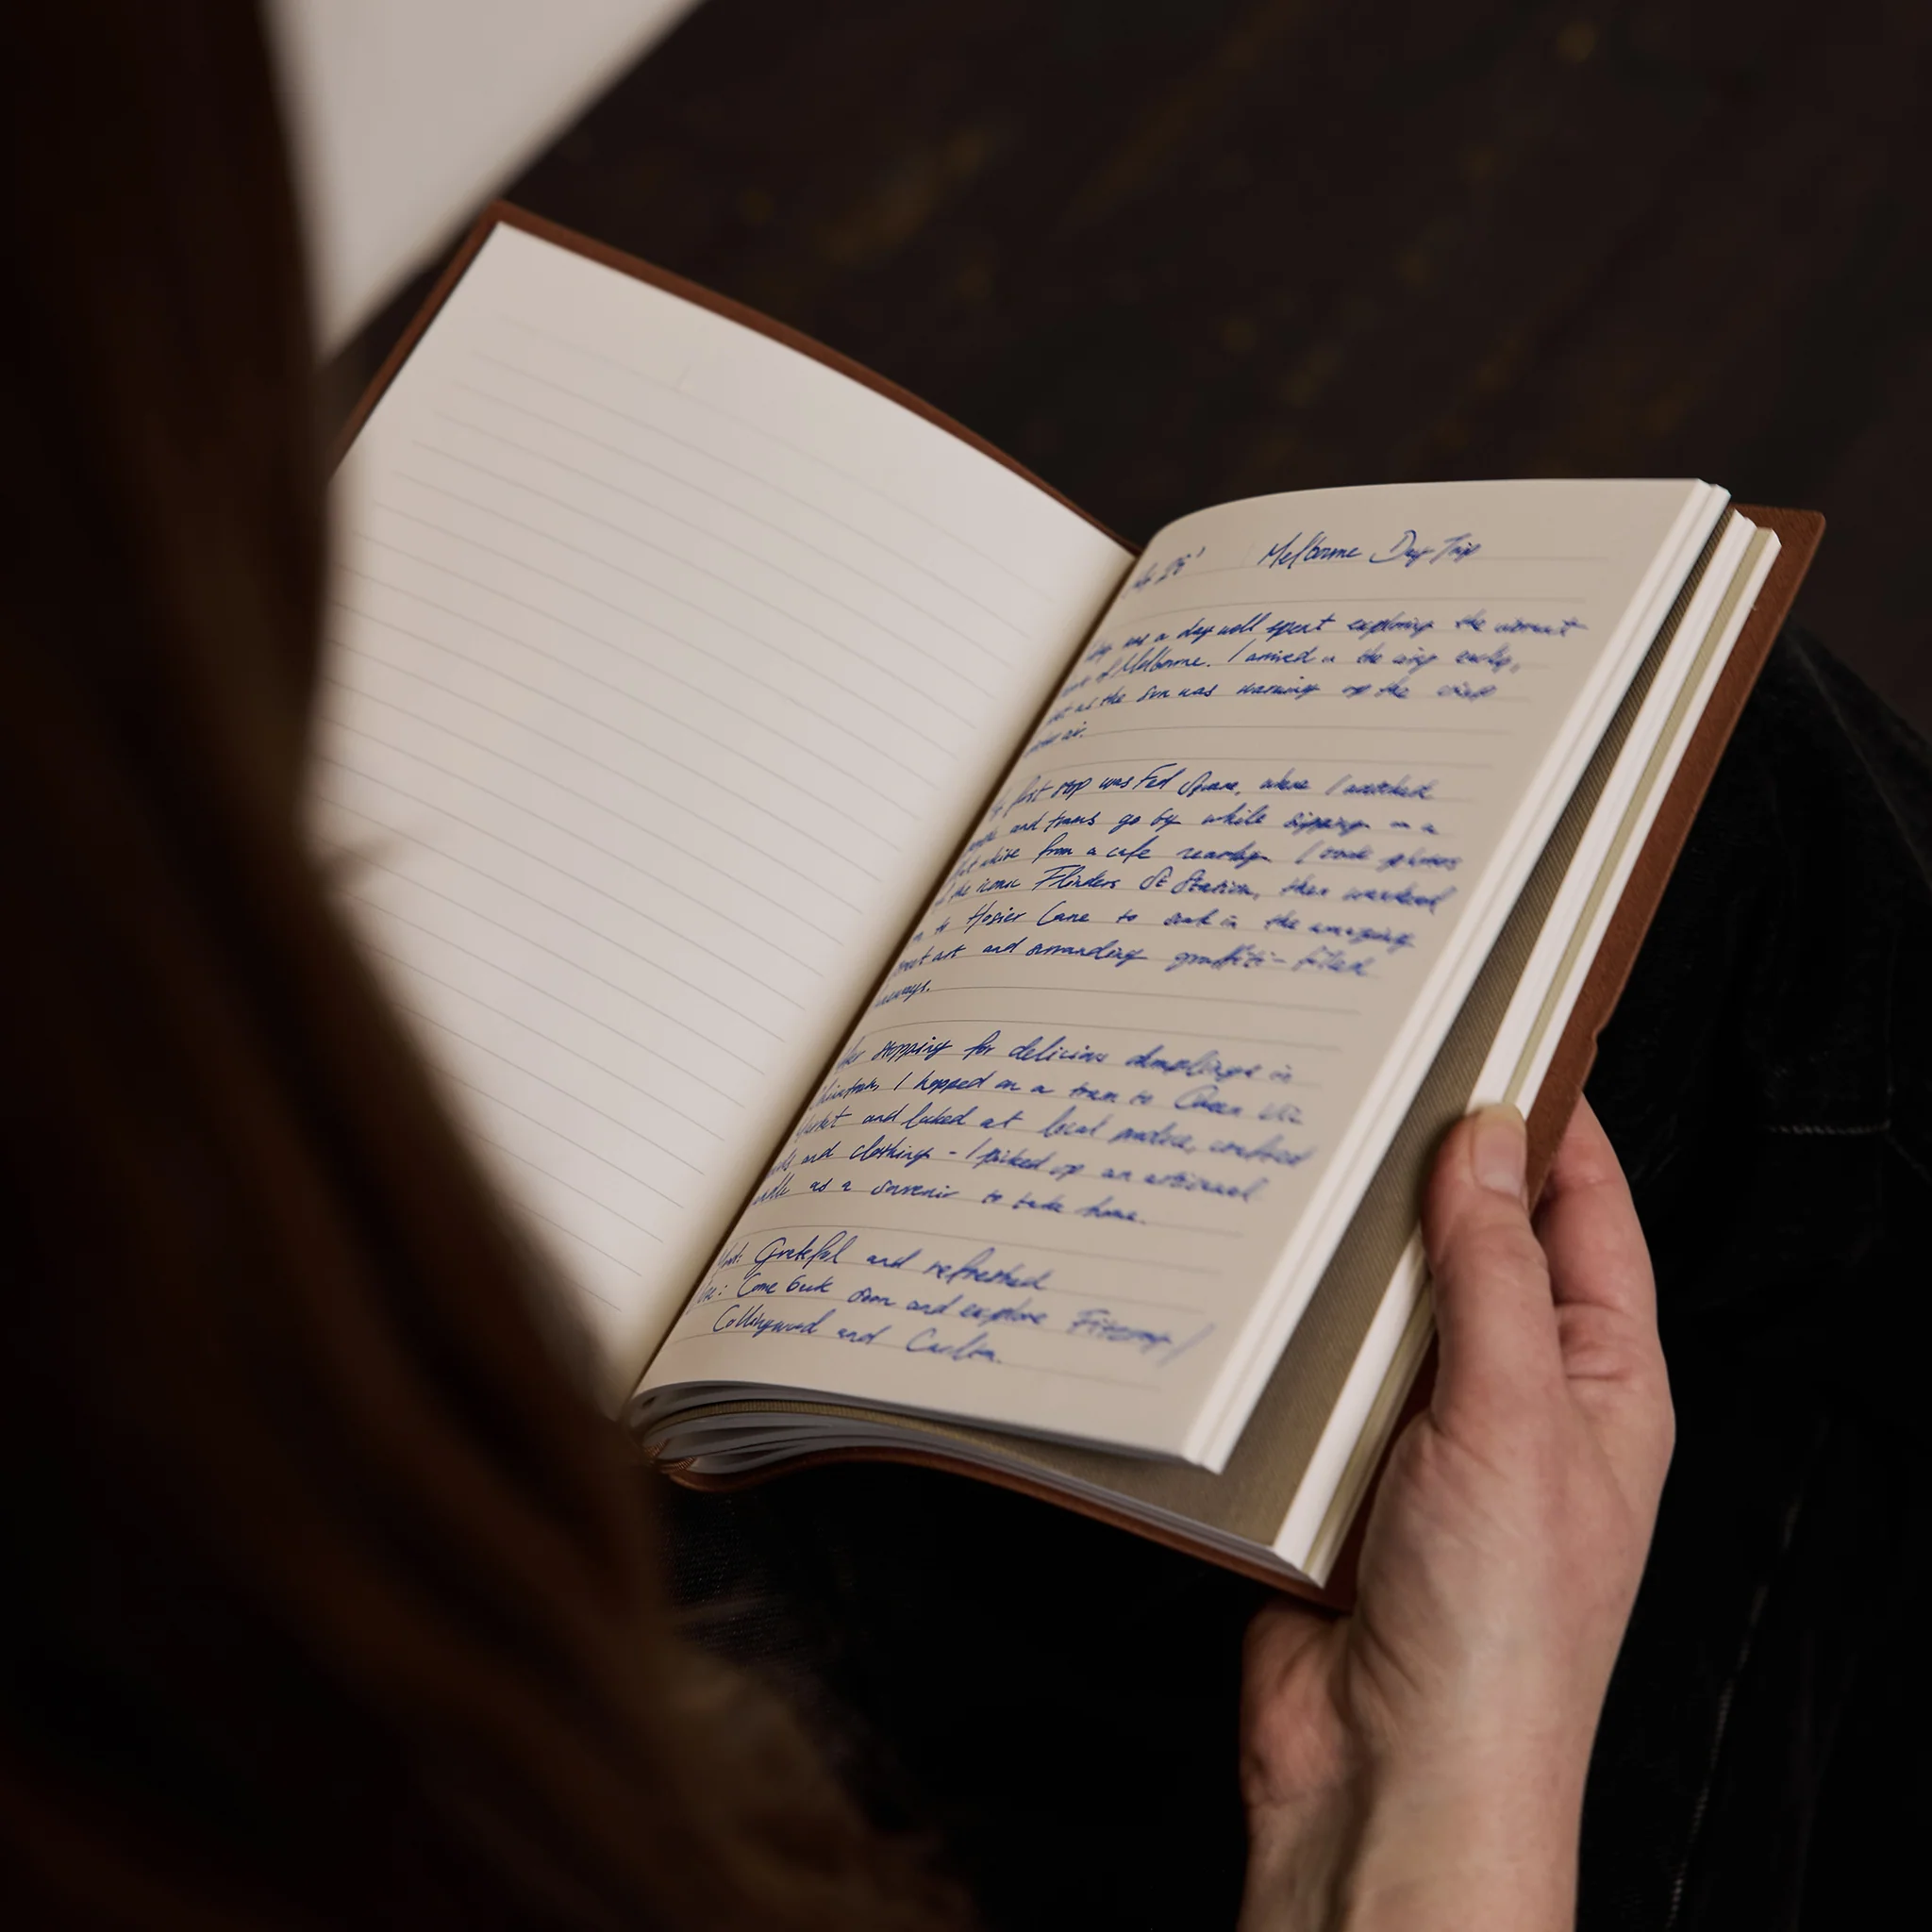 Melbourne Day Trip
was a day well spent exploring the vibrant
of Melbourne. I arrived in the city early,
as the sun was warming up the crisp
air.
first stop was Fed Square, where I watched
and trams go by while sipping on a
white from a cafe nearby. I took photos
the iconic Flinders St Station, then wandered
to Hosier Lane to soak in the amazing
street art and surrounding graffiti-filled
laneways.
stopping for delicious dumplings in
Chinatown, I hopped on a tram to Queen Vic
Market and looked at local produce, crafted
and clothing - I picked up an artisanal
candle as a souvenir to take home.
Grateful and refreshed
Come back soon and explore Fitzroy /
Collingwood and Carlton.